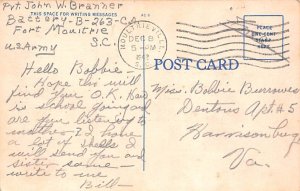 Pvt. John W. Branner
THIS SPACE FOR WRITING MESSAGES
Battery-B-263-CA
Fort Moultrie
S.C.
U.S Army
MOULTRIEVILLE
DEC 8
5-PM
S.C.
PLACE
ONE CENT
STAMP
HERE
POST CARD
Hello Bobbie.
Hope this will
find you O.K. Has
is school going and
are you listening to
mother? I have
a lot of shells I
will send you and
sister some—
write to me
Bill—
Miss. Bobbie Burrowes
Dentons Apt #5
Harrisonburg
Va.